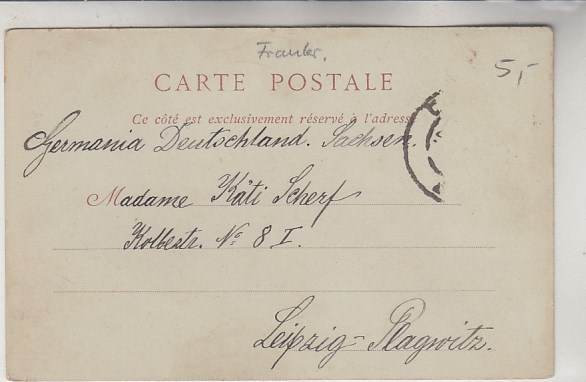 5,-
CARTE POSTALE
Ce côté est exclusivement réservé à l'adresse
Germania Deutschland. Sachsen.
Madame Käti Scherf
Kolbestr. No 8 I.
Leipzig-Plagwitz.